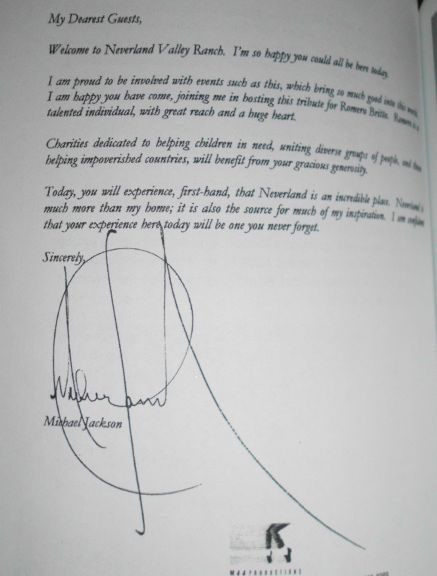 My Dearest Guests,
Welcome to Neverland Valley Ranch. I'm so happy you could all be here today.
I am proud to be involved with events such as this, which bring so much good into this world.
I am happy you have come, joining me in hosting this tribute for Romero Britto. Romero is a
talented individual, with great reach and a huge heart.
Charities dedicated to helping children in need, uniting diverse groups of people, and those
helping impoverished countries, will benefit from your gracious generosity.
Today, you will experience, first-hand, that Neverland is an incredible place. Neverland is
much more than my home; it is also the source for much of my inspiration. I am confident
that your experience here today will be one you never forget.
Sincerely,
Michael Jackson
MJJ PRODUCTIONS